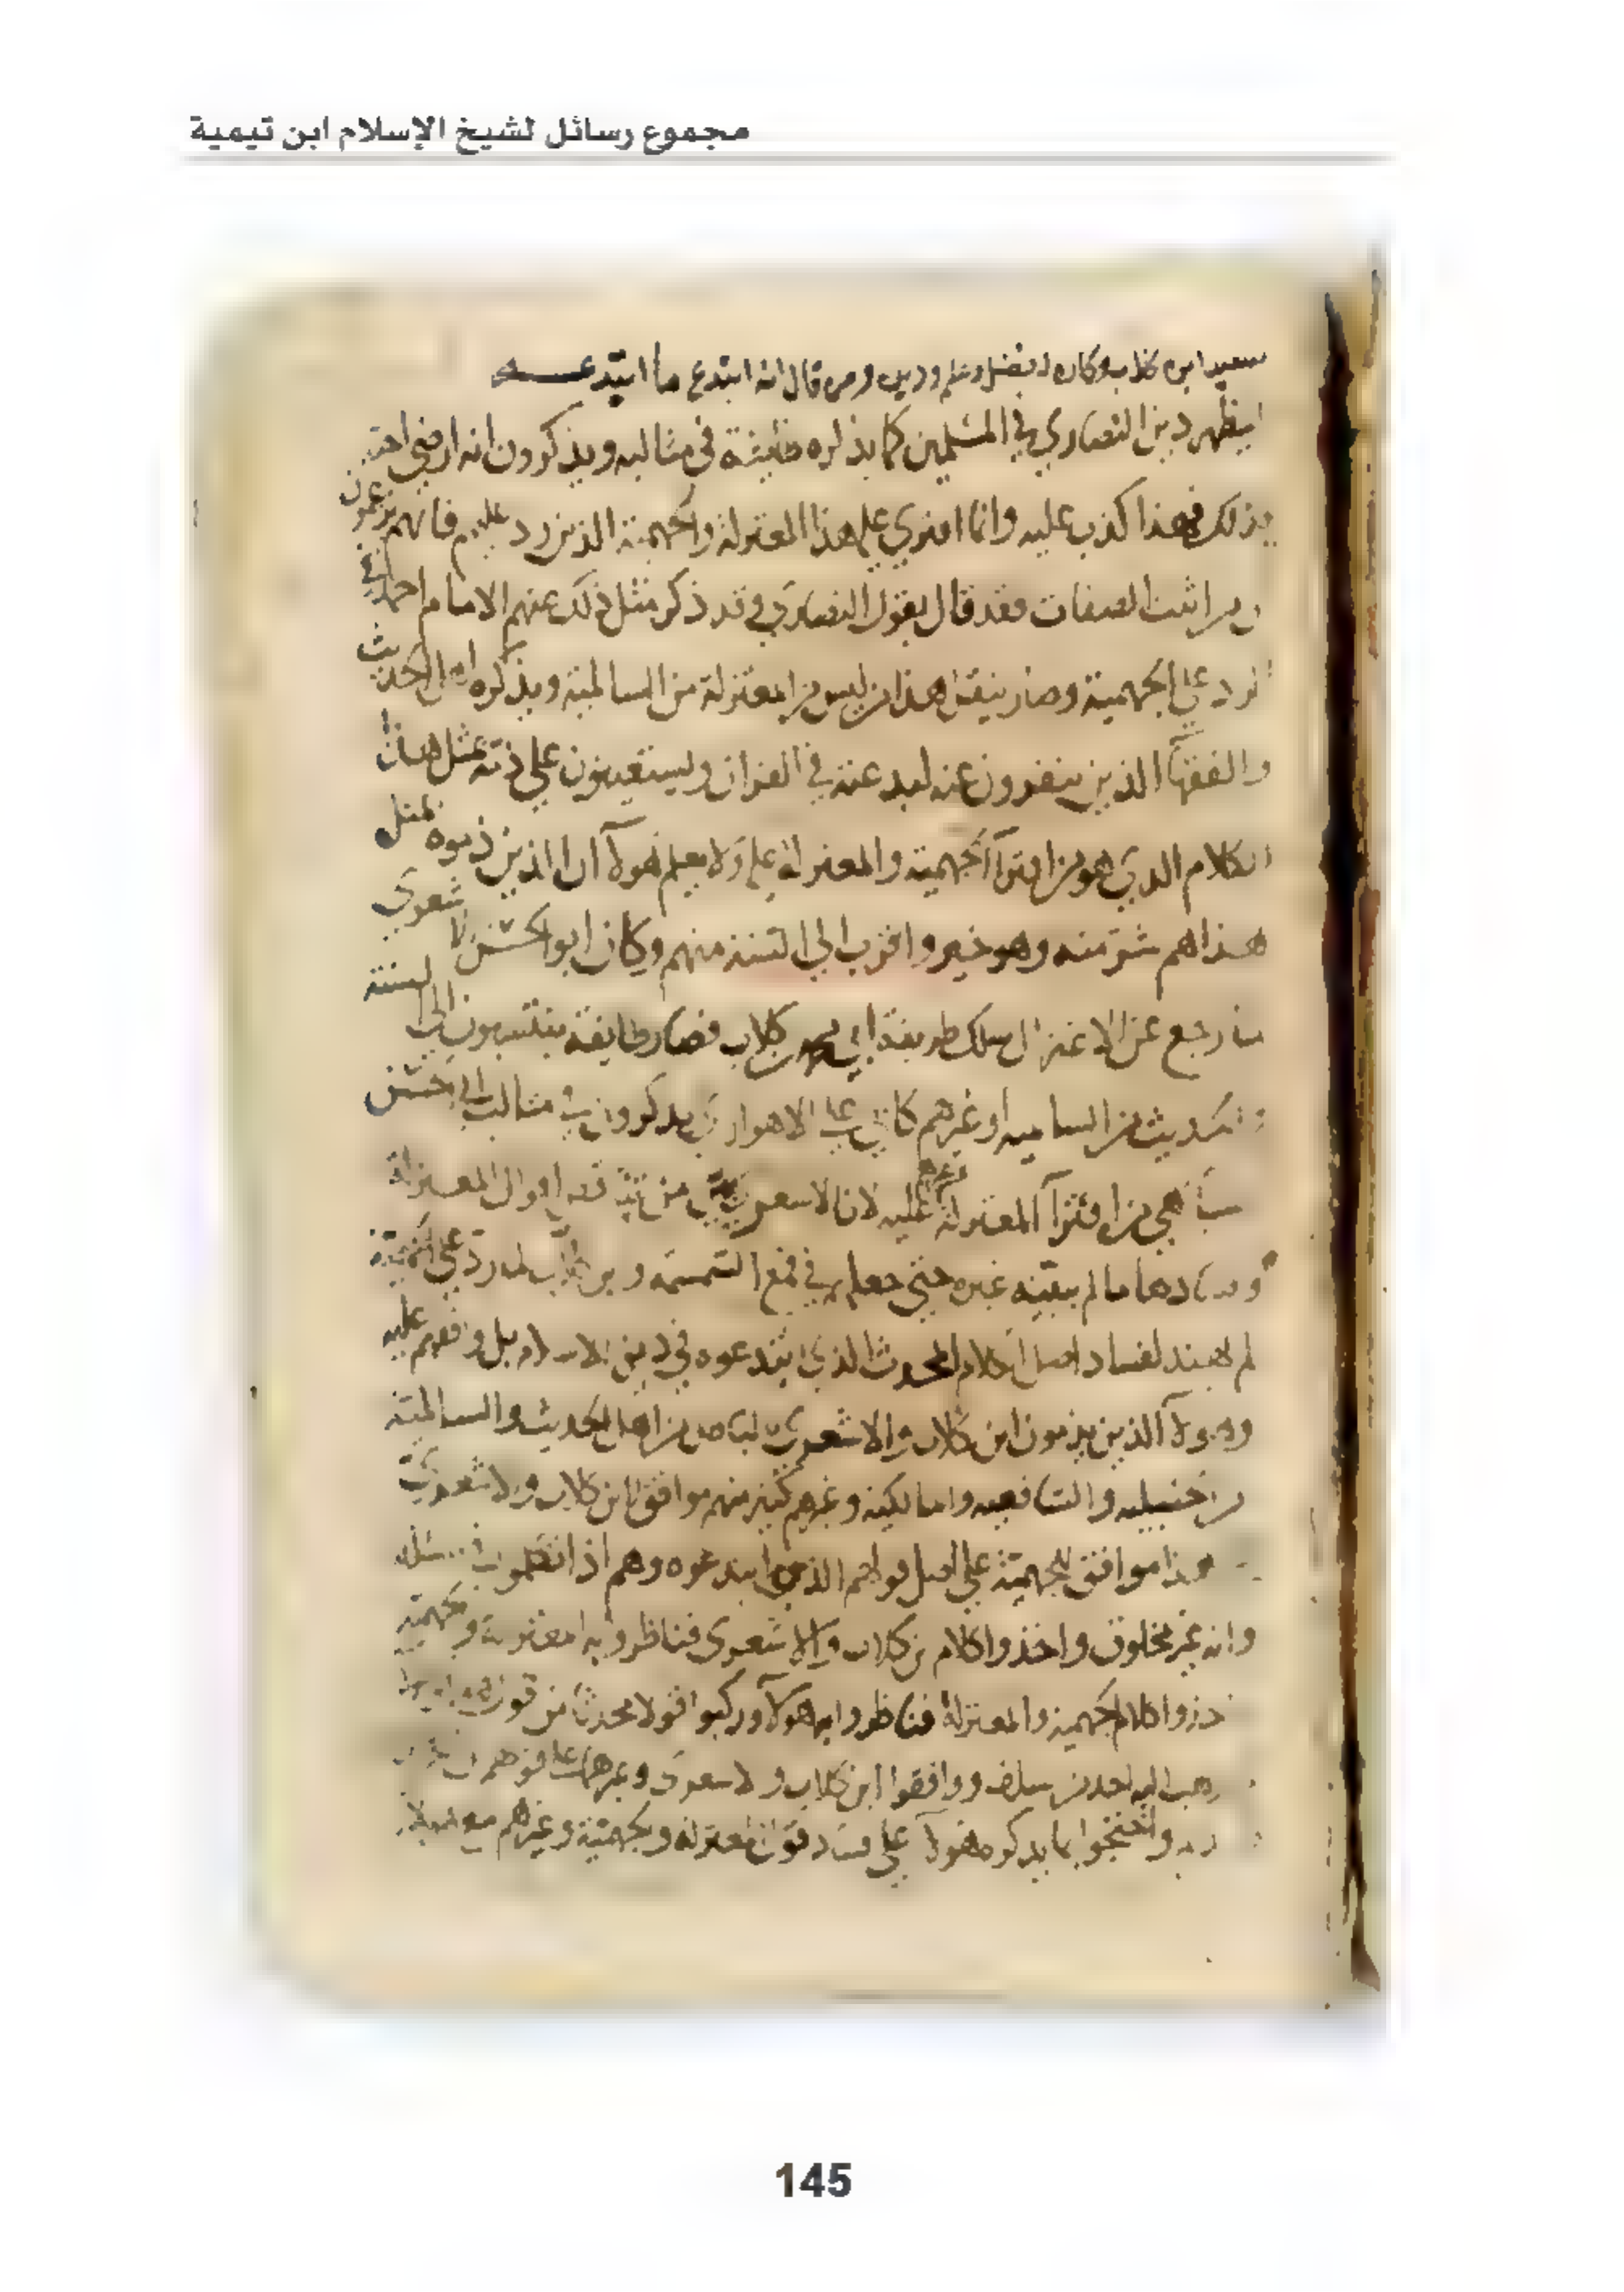 مجموع رسائل لشيخ الإسلام ابن تيمية
سعيد ابن كلاب وكان له فضل وعلم ودين ومن قال انه ابتدع ما ابتدعه
ليظهر دين النصاري في المسلمين كما يذكره طايفة في مثالبه ويذكرون انه ارضي اخته
بذلك فهذا كذب عليه وانما افتري عليه هذا المعتزلة والجهمية الذين رد عليهم فانهم يزعمون
ان من اثبت الصفات فقد قال بقول النصاري وقد ذكر مثل ذلك عنهم الامام احمد في
الرد علي الجهمية وصار ينقل هذا من ليس من المعتزلة من السالمية ويذكره اهل الحديث
والفقها الذين ينفرون عنه لبدعته في القران ويستعينون علي ذمه بمثل هذا
الكلام الذي هو من افترآ الجهمية والمعتزلة عليه ولا يعلم هولآ ان الذين ذموه بمثل
هذا هم شر منه وهو خير واقرب الي السنة منهم وكان ابو الحسن الاشعري
لما رجع عن الاعتزال سلك طريقة ابن كلاب فصار طايفة ينتسبون الي السنة
والحديث من السالمية وغيرهم كابي علي الاهوازي يذكرون في مثالب ابي الحسن
هي من افترآ المعتزلة وغيرهم عليه لان الاشعري بين من اقوال المعتزلة
وفسادها ما لم يبينه غيره حتي جعلهم في قمع السمسمة وابن كلاب لما رد علي الجهمية
لم يهتد لفساد اصل الكلام المحدث الذي ابتدعوه في دين الاسلام بل وافقهم عليه
وهولآ الذين يذمون ابن كلاب والاشعري من اهل الحديث والسالمية
والحنبلية والشافعية والمالكية وغيرهم كثير منهم موافق لابن كلاب والاشعري
هذا موافق للجهمية علي اصل قولهم الذي ابتدعوه وهم اذا تكلموا في مسئلة
وانه غير مخلوق واخذوا كلام ابن كلاب والاشعري فناظروا به المعتزلة والجهمية
واخذوا كلام الجهمية والمعتزلة فناظروا به هولآ وركبوا قولا محدثا من قول
يذهب اليه احد من السلف ووافقوا ابن كلاب والاشعري وغيرهما علي قولهم
واحتجوا بما يذكره هولآ علي فساد قول المعتزلة والجهمية وغيرهم
145